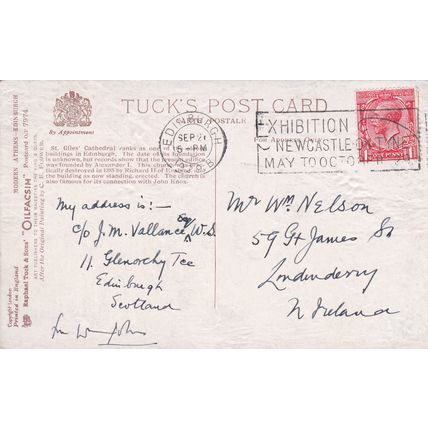 TUCK'S POST CARD
CARTE POSTALE
By Appointment
(For Address Only)
EDINBURGH
SEP 21
5 - PM
EXHIBITION
NEWCASTLE-ON-TYNE
MAY TO OCTOBER
ONE PENNY
St. Giles' Cathedral ranks as one of
buildings in Edinburgh. The date of its foundation
is unknown, but records show that the second edifice
was founded by Alexander I. This church
destroyed in 1385 by Richard II of England,
the building as now standing, erected. The church is
also famous for its connection with John Knox.
My address is:—
c/o J. M. Vallance Esq W.S.
11 Glenorchy Tce
Edinburgh
Scotland
Mr Wm Nelson
59 Gt James St
Londonderry
N Ireland
Copyright London
Printed in England
Raphael Tuck & Sons' "OILFACSIM" Postcard No 7974
MODERN ATHENS—EDINBURGH
ART PUBLISHERS TO THEIR MAJESTIES THE KING & QUEEN
After the Original Painting by C. E. FLOWER.